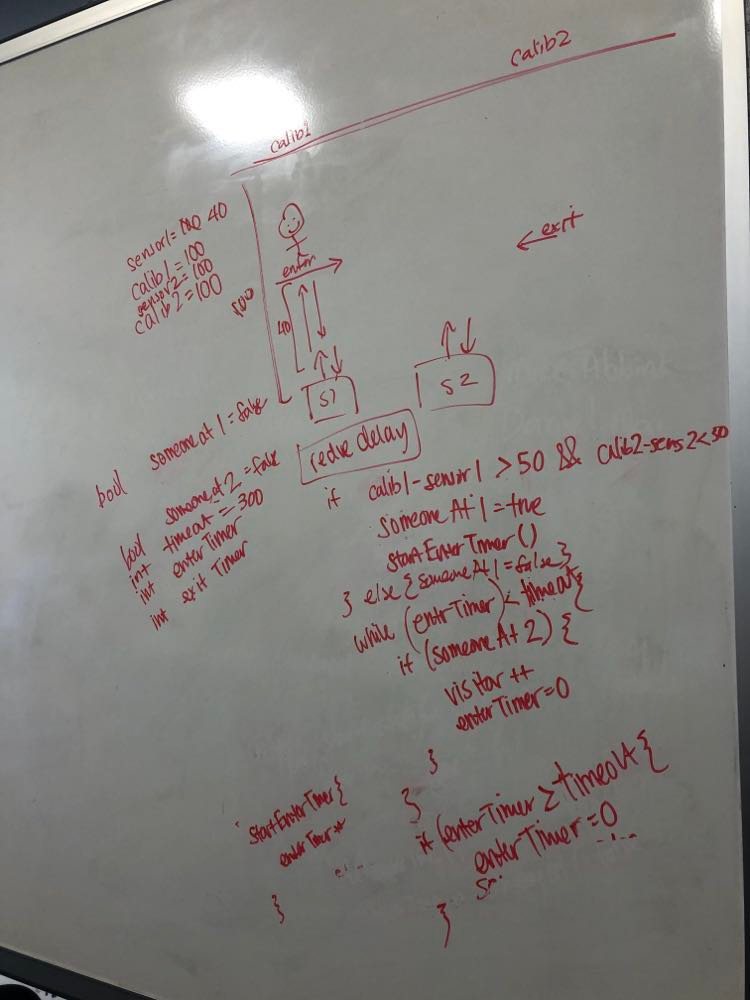 calib2
calib1
sensor1= 40
calib1=100
sensor2=100
calib2=100
enter
exit
40
S1
S2
bool someone at 1 = false
bool someone at 2 = false
int timeout = 300
int enterTimer
int exit Timer
delay
if calib1-sensor1 >50 && calib2-sens2<50
someoneAt1=true
startEnterTimer()
} else {someoneAt1=false}
while (enterTimer) < timeout{
if (someoneAt2) {
visitor ++
enterTimer=0
}
}
startEnterTimer{
enterTimer++
}
if (enterTimer ≥ timeout {
enterTimer=0
}